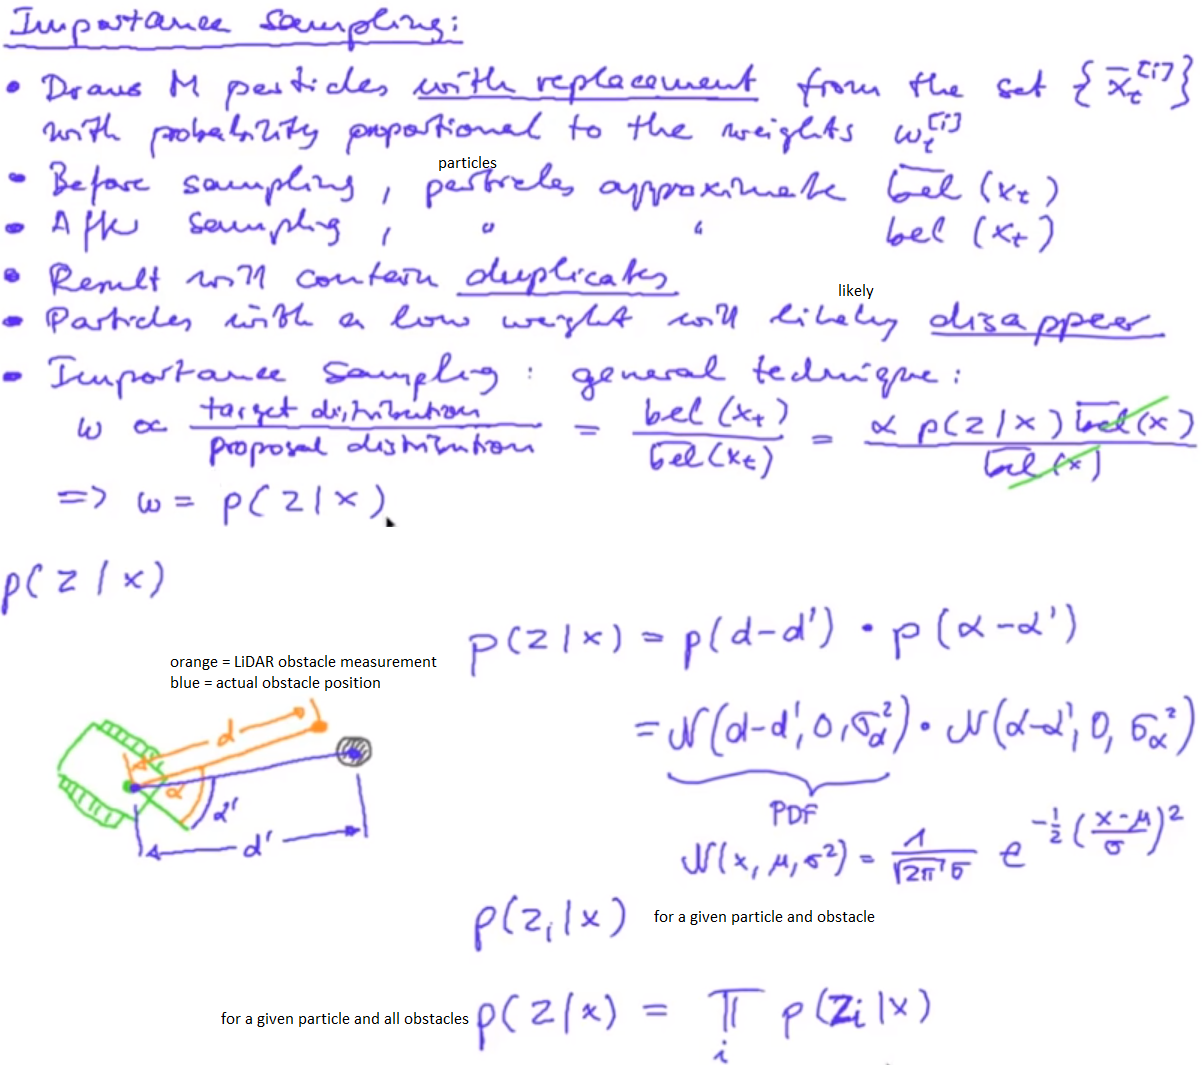 Importance sampling:
• Draws M particles with replacement from the set {x̄_t^[i]}
with probability proportional to the weights w_t^[i]
particles
• Before sampling, particles approximate b̅e̅l̅(x_t)
• After sampling, " " bel(x_t)
• Result will contain duplicates
likely
• Particles with a low weight will likely disappear
• Importance Sampling: general technique:
w ∝ target distribution / proposal distribution = bel(x_t) / b̅e̅l̅(x_t) = α p(z|x) b̅e̅l̅(x) / b̅e̅l̅(x)
=> w = p(z|x)
p(z|x)
p(z|x) = p(d-d') · p(α-α')
orange = LiDAR obstacle measurement
blue = actual obstacle position
d
α
α'
d'
= N(d-d', 0, σ_d^2) · N(α-α', 0, σ_α^2)
PDF
N(x, μ, σ²) = 1/(√2π σ) e^(-1/2 ((x-μ)/σ)²)
p(z_i|x) for a given particle and obstacle
for a given particle and all obstacles p(z|x) = ∏_i p(z_i|x)